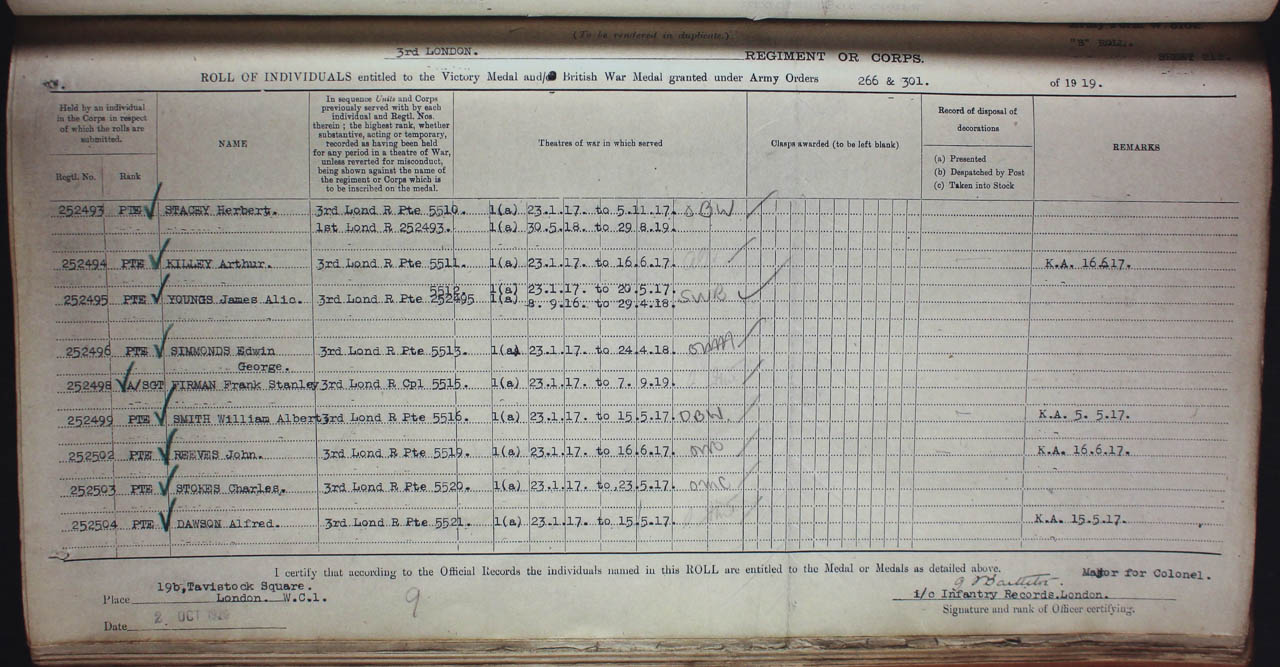 (To be rendered in duplicate.)
"B" ROLL.
3rd LONDON. REGIMENT OR CORPS.
ROLL OF INDIVIDUALS entitled to the Victory Medal and/ British War Medal granted under Army Orders 266 & 301. of 1919.
Held by an individual in the Corps in respect of which the rolls are submitted.
Regtl. No. Rank
NAME
In sequence Units and Corps previously served with by each individual and Regtl. Nos. therein; the highest rank, whether substantive, acting or temporary, recorded as having been held for any period in a theatre of War, unless reverted for misconduct, being shown against the name of the regiment or Corps which is to be inscribed on the medal.
Theatres of war in which served
Clasps awarded (to be left blank)
Record of disposal of decorations
(a) Presented
(b) Despatched by Post
(c) Taken into Stock
REMARKS
252493 PTE STACEY Herbert. 3rd Lond R Pte 5510. 1(a) 23.1.17. to 5.11.17. DBW
1st Lond R 252493. 1(a) 30.5.18. to 29 8.19.
252494 PTE KILLEY Arthur. 3rd Lond R Pte 5511. 1(a) 23.1.17. to 16.6.17. K.A. 16.6.17.
5512. 1(a) 23.1.17. to 20.5.17.
252495 PTE YOUNGS James Alic. 3rd Lond R Pte 252495 1(a) 8. 9.16. to 29.4.18. SWB
252496 PTE SIMMONDS Edwin 3rd Lond R Pte 5513. 1(a) 23.1.17. to 24.4.18.
George.
252498 A/SGT FIRMAN Frank Stanley 3rd Lond R Cpl 5515. 1(a) 23.1.17. to 7. 9.19.
252499 PTE SMITH William Albert 3rd Lond R Pte 5516. 1(a) 23.1.17. to 15.5.17. DBW. K.A. 5. 5.17.
252502 PTE REEVES John. 3rd Lond R Pte 5519. 1(a) 23.1.17. to 16.6.17. K.A. 16.6.17.
252503 PTE STOKES Charles. 3rd Lond R Pte 5520. 1(a) 23.1.17. to 23.5.17. OMC
252504 PTE DAWSON Alfred. 3rd Lond R Pte 5521. 1(a) 23.1.17. to 15.5.17. K.A. 15.5.17.
I certify that according to the Official Records the individuals named in this ROLL are entitled to the Medal or Medals as detailed above.
19b, Tavistock Square. Major for Colonel.
Place London. W.C.1. 9 i/c Infantry Records.London.
Date 2 OCT 1920 Signature and rank of Officer certifying.